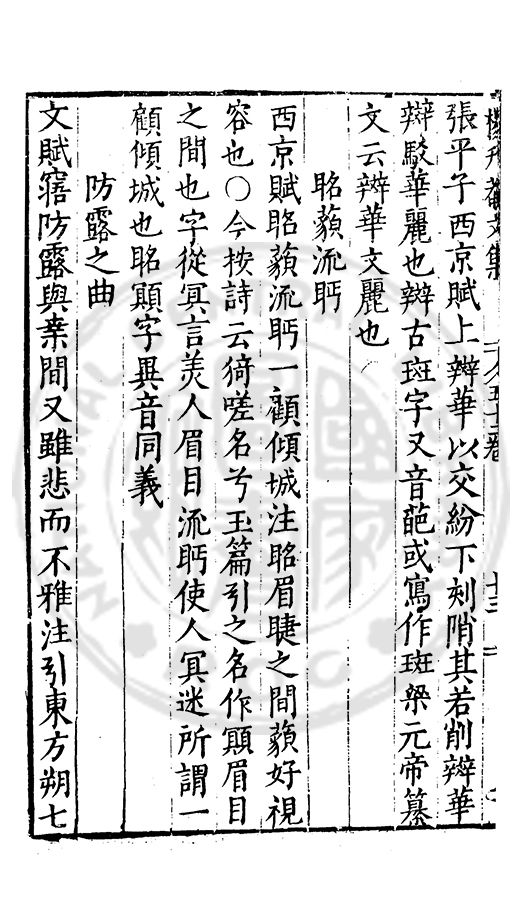 張平子西京賦上辬華以交紛下刻陗其若削辬華
辬駁華麗也辬古斑字又音葩或寫作斑梁元帝纂
文云辬華文麗也
眳藐流眄
西京賦眳藐流眄一顧傾城注眳眉睫之間藐好視
容也〇今按詩云猗嗟名兮玉篇引之名作顯眉目
之間也字從冥言美人眉目流眄使人冥迷所謂一
顧傾城也眳顯字異音同義
防露之曲
文賦寤防露與桒間又雖悲而不雅注引東方朔七